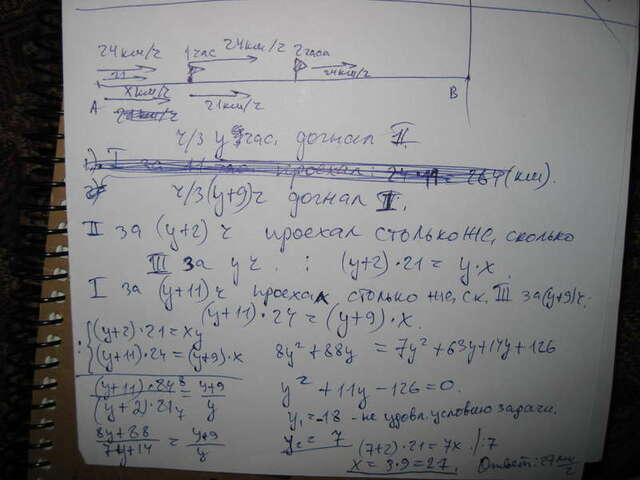 24км/ч 1 час 24км/ч 2 часа
21 24км/ч
xкм/ч 21км/ч
А В
ч/з y час. догнал II
1) I за 11 час проехал: 24·11 = 264 (км).
2) ч/з (y+9)ч догнал I.
II за (y+2) ч проехал столько же, сколько
III за y ч. : (y+2)·21 = y·x.
I за (y+11) ч проехал столько же, ск. III за (y+9)ч:
(y+11)·24 = (y+9)·x.
: {(y+2)·21 = xy
{(y+11)·24 = (y+9)·x
(y+11)·24 8 / (y+2)·21 7 = y+9 / y
8y+88 / 7y+14 = y+9 / y
8y² + 88y = 7y² + 63y + 14y + 126
y² + 11y - 126 = 0.
y₁ = -18 - не удовл. условию задачи.
y₂ = 7
(7+2)·21 = 7x /:7
x = 3·9 = 27.
Ответ: 27 км/ч